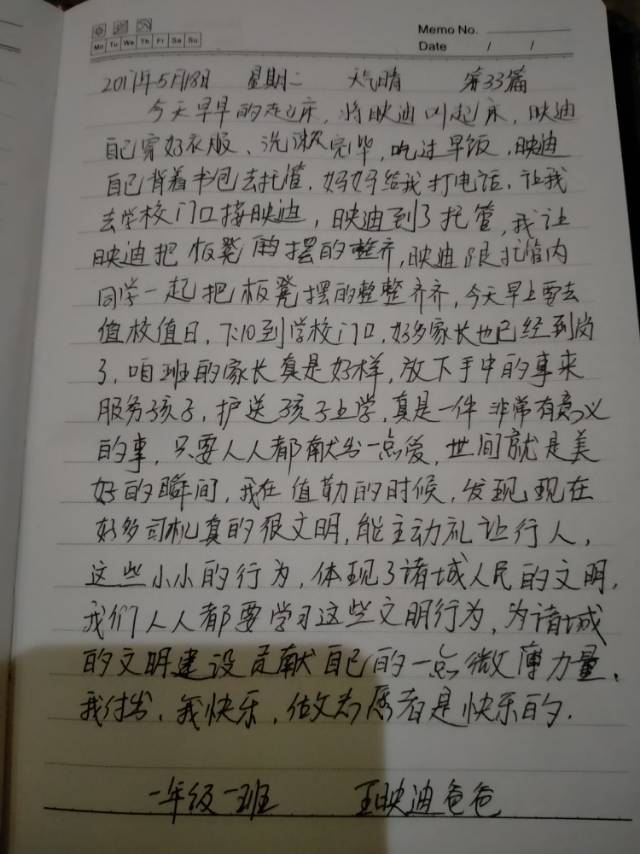 Memo No.
Mo Tu We Th Fr Sa Su
Date / /
2017年5月18日 星期二 天气晴 第33篇
今天早早的起床，将映迪叫起床，映迪
自己穿好衣服、洗漱完毕，吃过早饭，映迪
自己背着书包去托管，妈妈给我打电话，让我
去学校门口接映迪，映迪到了托管，我让
映迪把板凳摆的整齐，映迪跟托管内
同学一起把板凳摆的整整齐齐，今天早上要去
值校值日，7:10到学校门口，好多家长也已经到岗
了，咱班的家长真是好样，放下手中的事来
服务孩子，护送孩子上学，真是一件非常有意义
的事，只要人人都献出一点爱，世间就是美
好的瞬间，我在值勤的时候，发现现在
好多司机真的很文明，能主动礼让行人，
这些小小的行为，体现了诸城人民的文明，
我们人人都要学习这些文明行为，为诸城
的文明建设贡献自己的一点微薄力量，
我付出，我快乐，做为者是快乐的．
一年级一班 王映迪爸爸